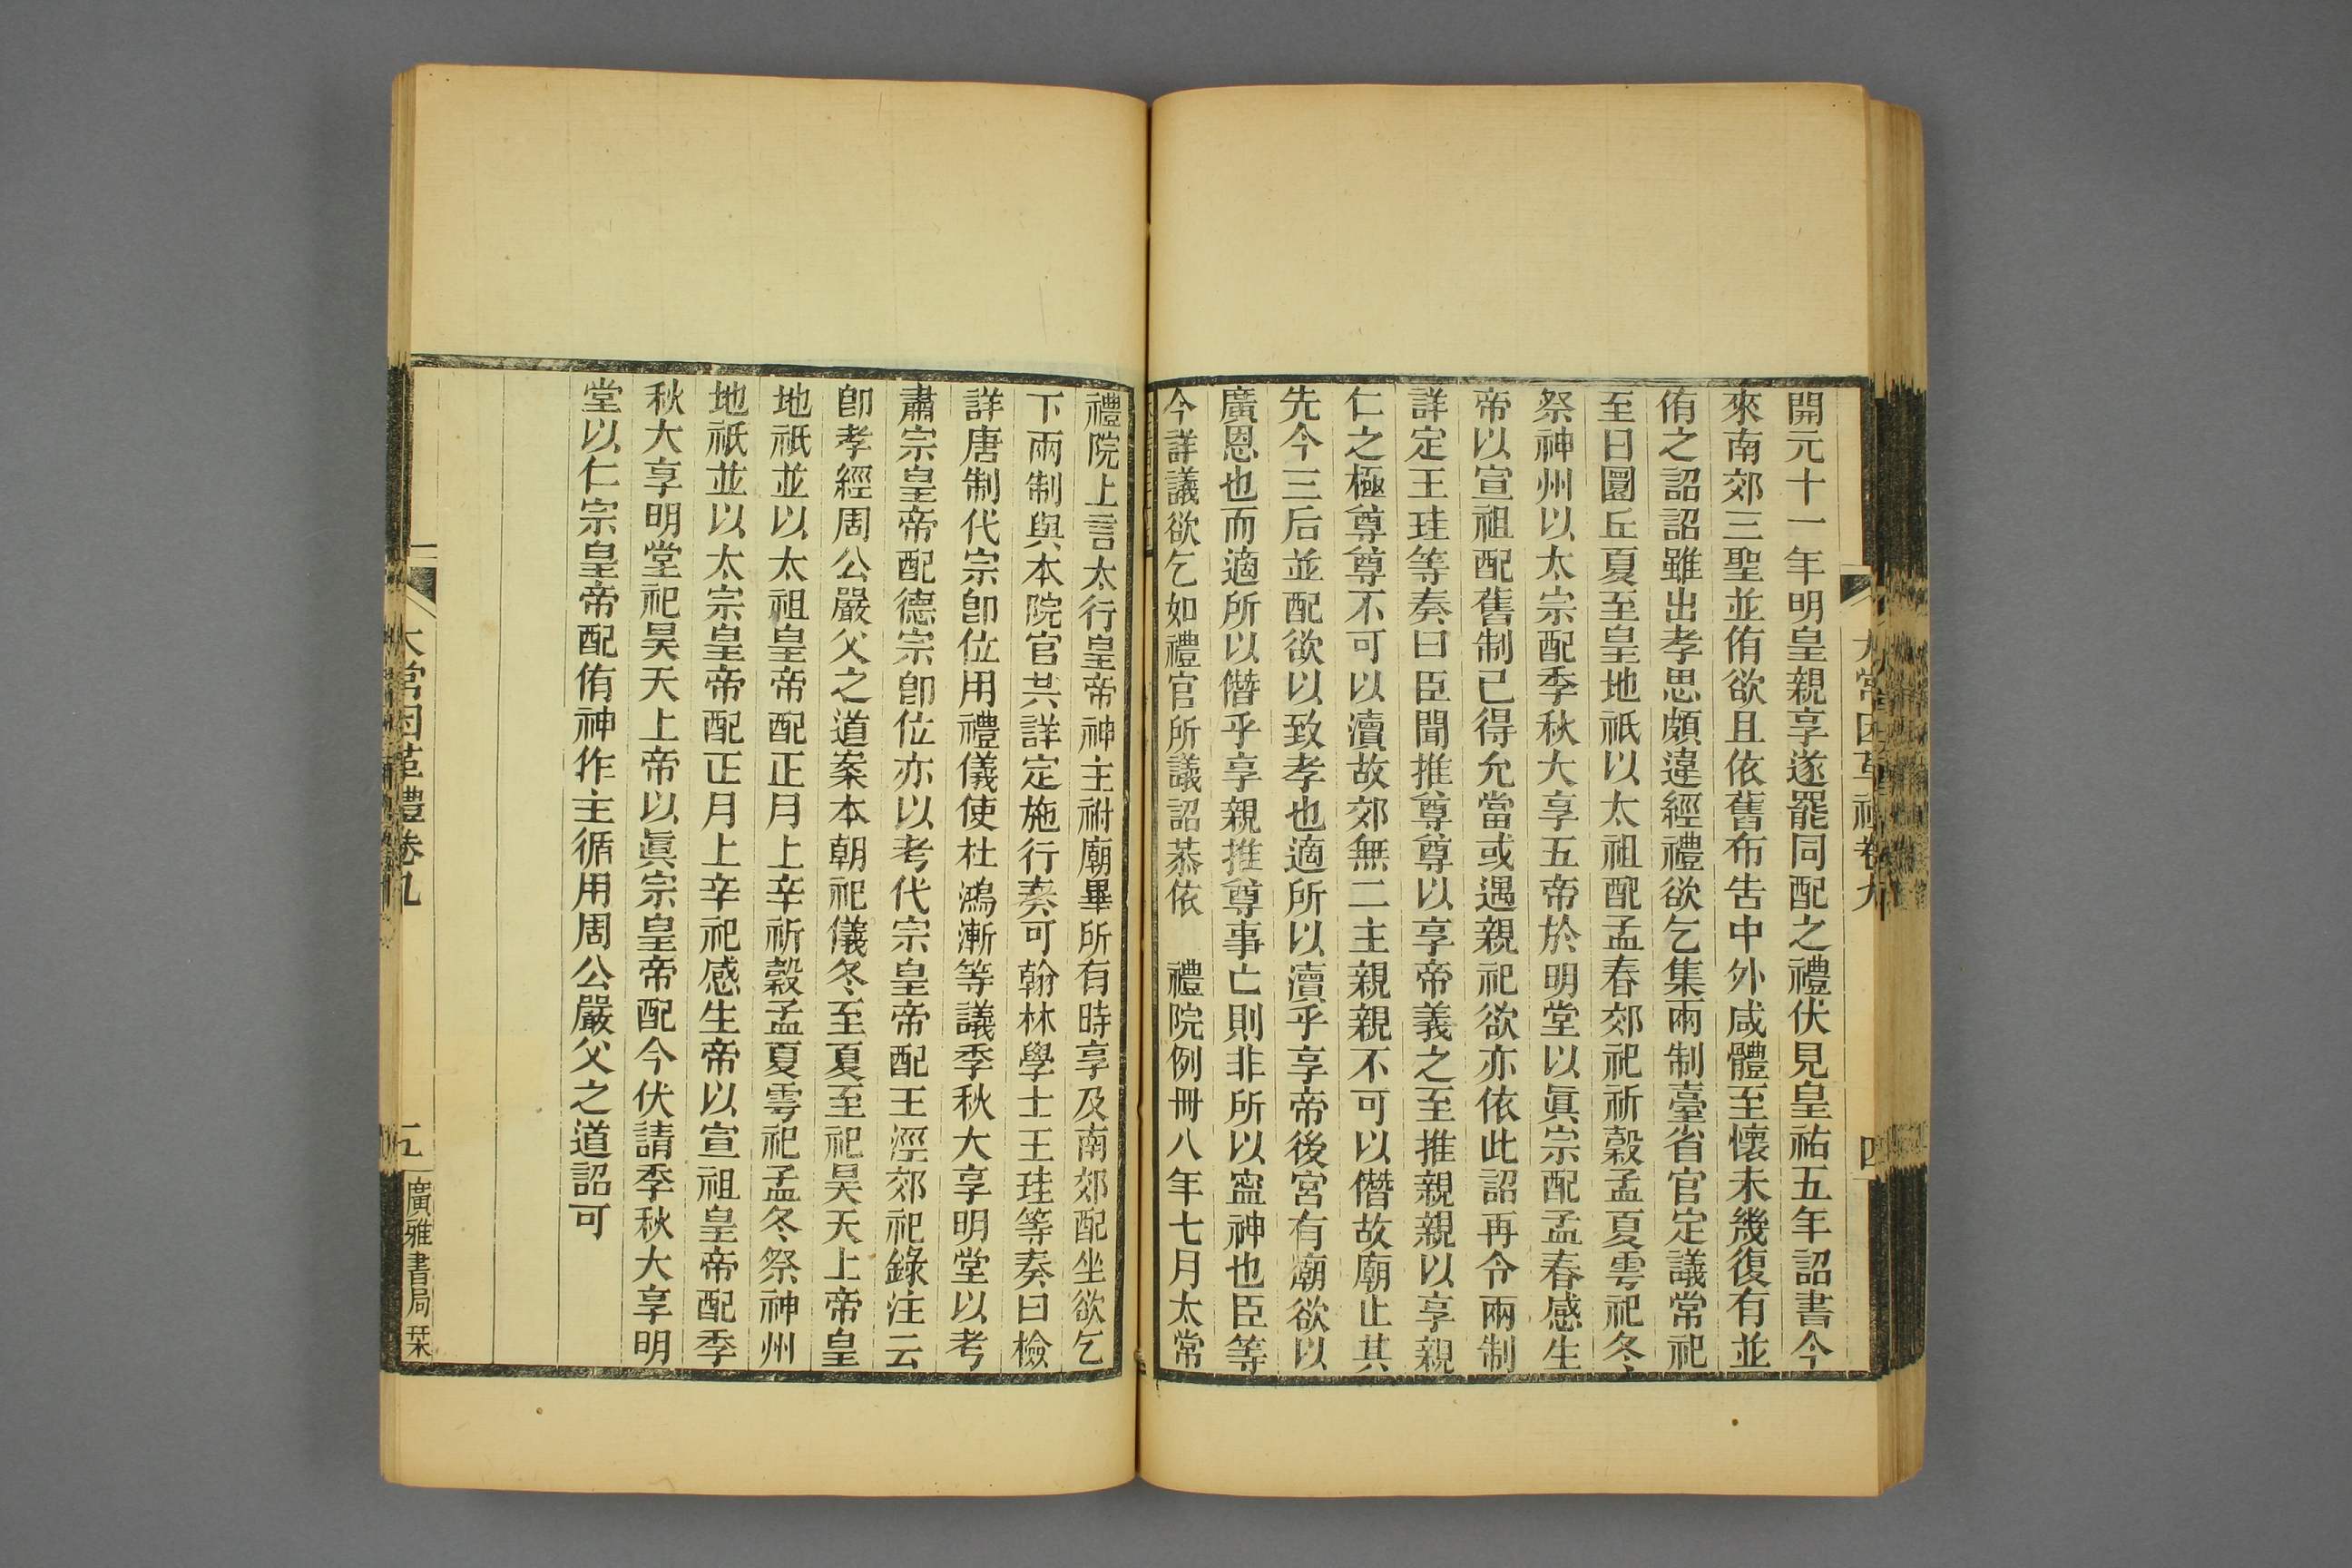 開元十一年明皇親享遂罷同配之禮伏見皇祐五年詔書今
來南郊三聖並侑欲且依舊布告中外咸體至懷未幾復有並
侑之詔詔雖出孝思頗違經禮欲乞集兩制臺省官定議常祀
至日圜丘夏至皇地祇以太祖配孟春郊祀祈穀孟夏雩祀冬
祭神州以太宗配季秋大享五帝於明堂以眞宗配孟春感生
帝以宣祖配舊制已得允當或遇親祀欲亦依此詔再令兩制
詳定王珪等奏曰臣聞推尊尊以享帝義之至推親親以享親
仁之極尊尊不可以瀆故郊無二主親親不可以僭故廟止其
先今三后並配欲以致孝也適所以瀆乎享帝後宮有廟欲以
廣恩也而適所以僭乎享親推尊事亡則非所以寍神也臣等
今詳議欲乞如禮官所議詔恭依　禮院例冊八年七月太常
禮院上言大行皇帝神主祔廟畢所有時享及南郊配坐欲乞
下兩制與本院官共詳定施行奏可翰林學士王珪等奏曰檢
詳唐制代宗卽位用禮儀使杜鴻漸等議季秋大享明堂以考
肅宗皇帝配德宗卽位亦以考代宗皇帝配王涇郊祀錄注云
卽孝經周公嚴父之道案本朝祀儀冬至夏至祀昊天上帝皇
地祇並以太祖皇帝配正月上辛祈穀孟夏雩祀孟冬祭神州
地祇並以太宗皇帝配正月上辛祀感生帝以宣祖皇帝配季
秋大享明堂祀昊天上帝以眞宗皇帝配今伏請季秋大享明
堂以仁宗皇帝配侑神作主循用周公嚴父之道詔可
太常因革禮卷九
五
廣雅書局栞